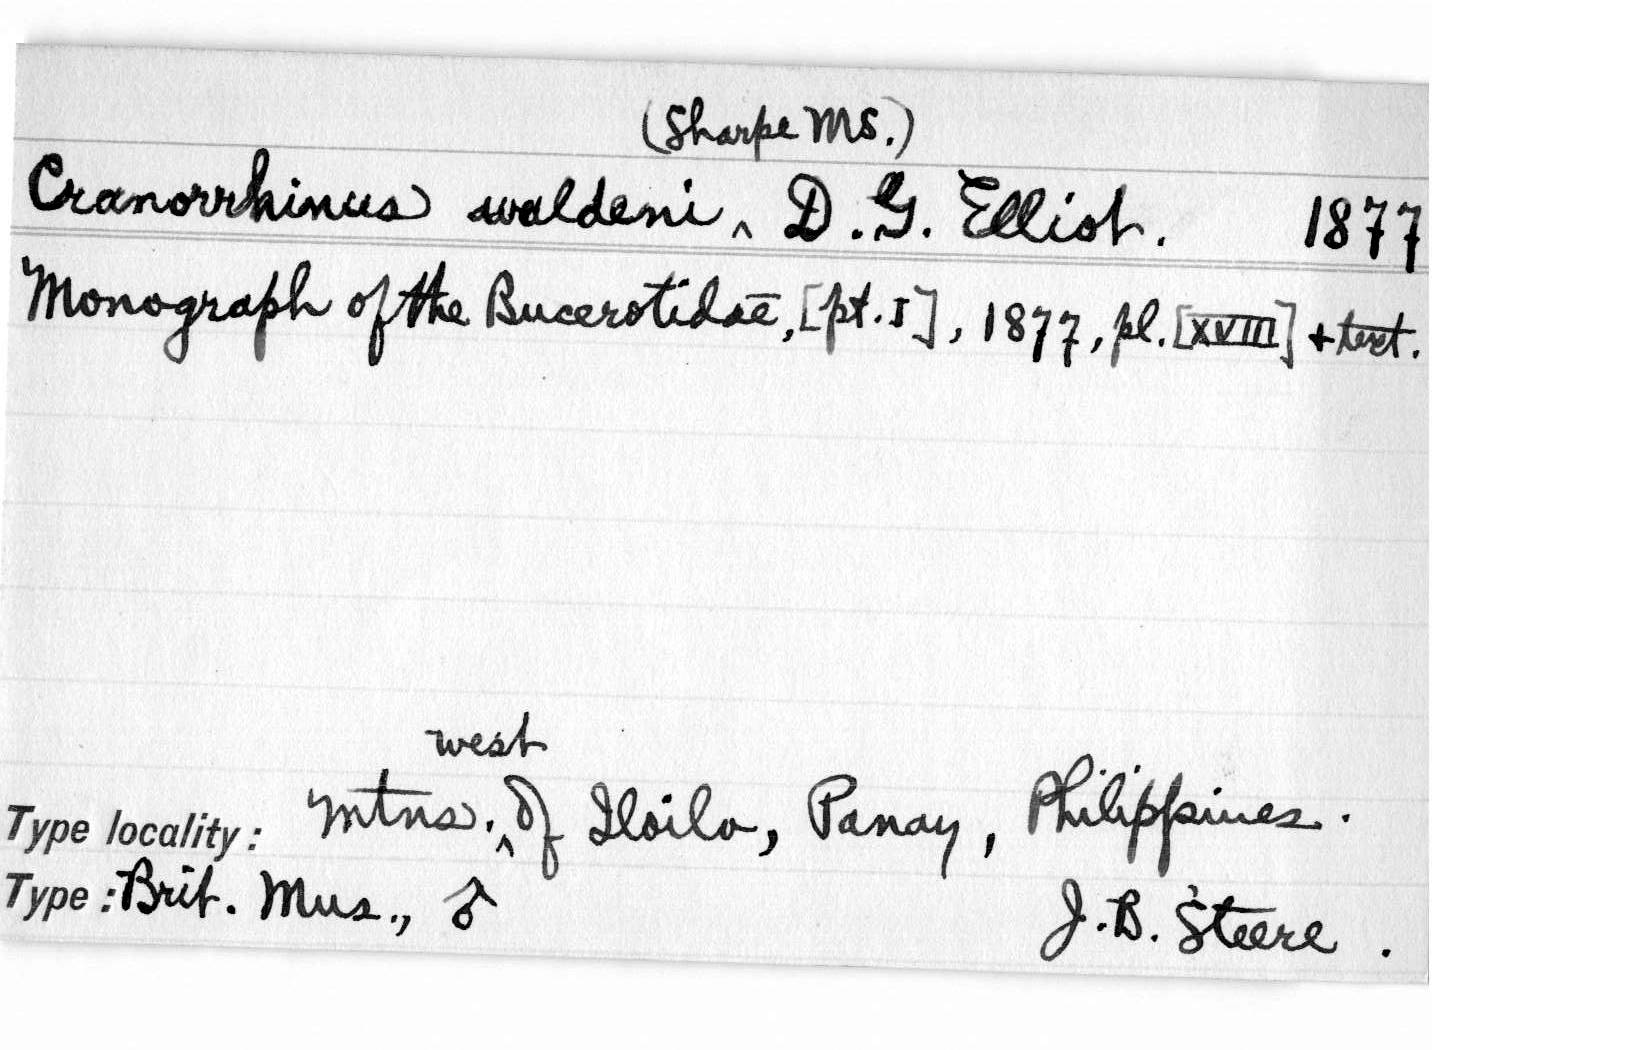 (Sharpe MS.)
Cranorrhinus waldeni ‸ D. G. Elliot. 1877
Monograph of the Bucerotidae, [pt. I], 1877, pl. [XVIII] + text.
west
Type locality: Mtns. ‸ of Iloilo, Panay, Philippines.
Type: Brit. Mus., ♂ J. B. Steere.